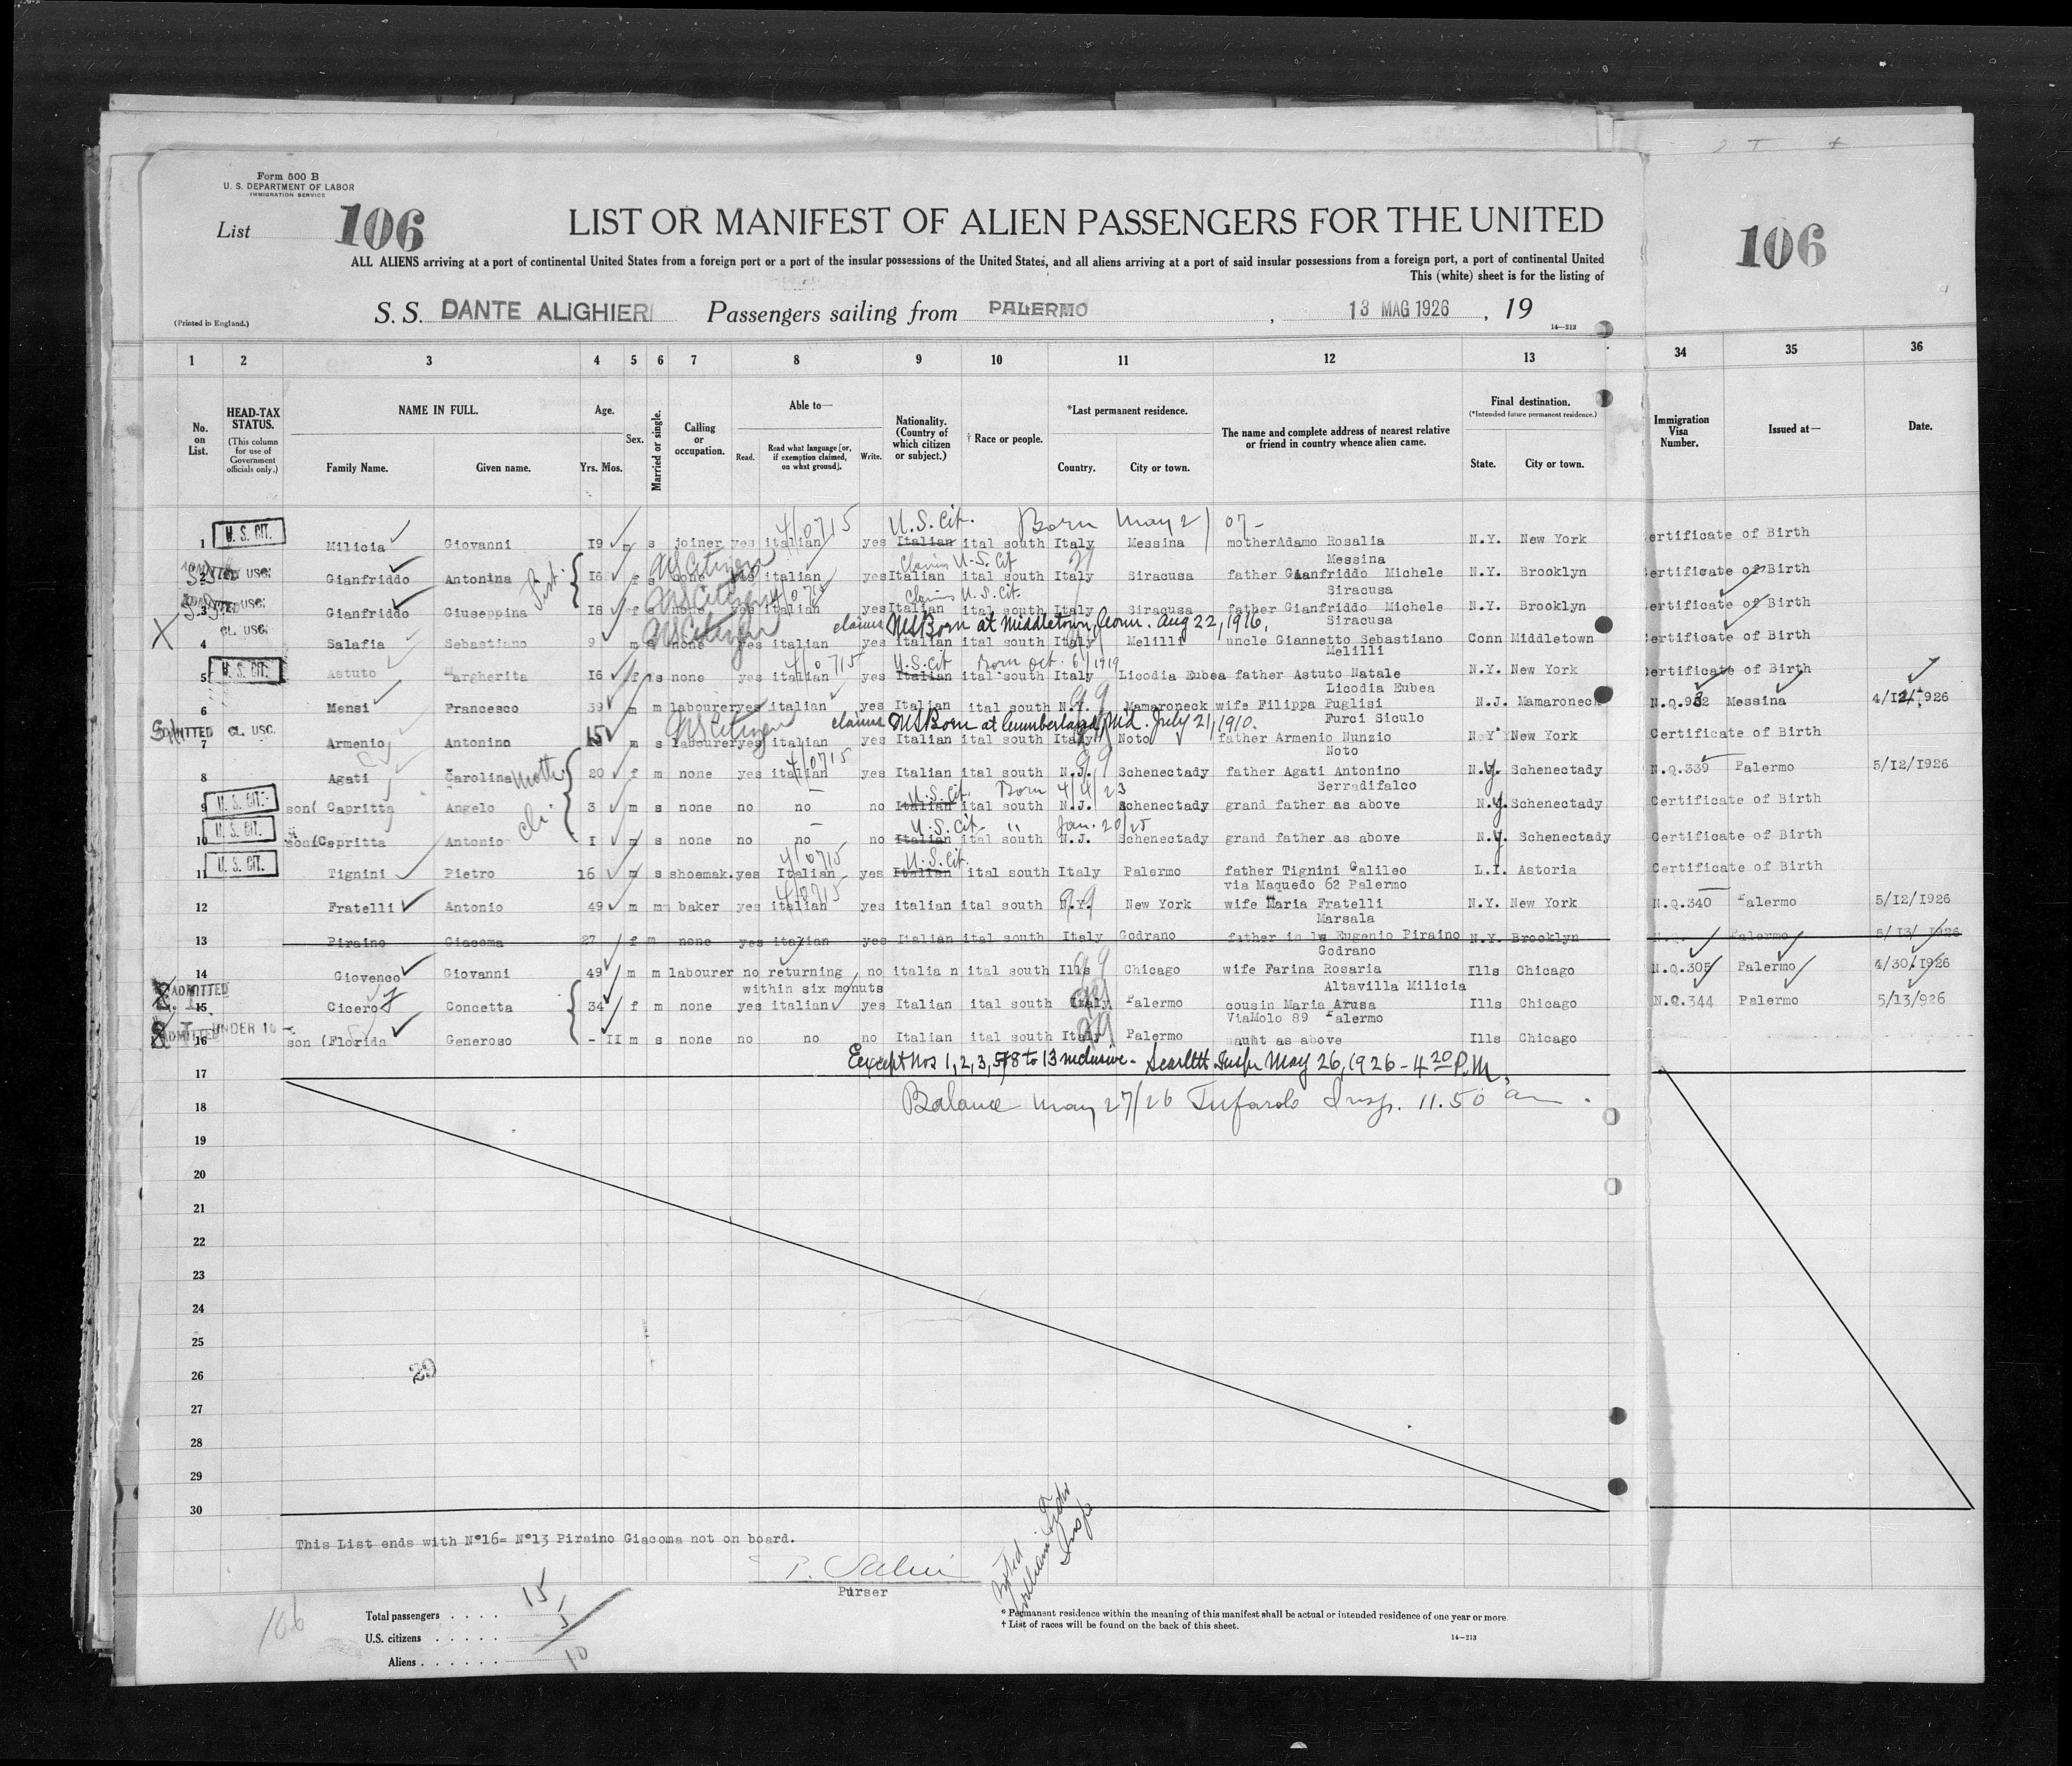 Form 500 B
U. S. DEPARTMENT OF LABOR
IMMIGRATION SERVICE
List 106
LIST OR MANIFEST OF ALIEN PASSENGERS FOR THE UNITED
106
ALL ALIENS arriving at a port of continental United States from a foreign port or a port of the insular possessions of the United States, and all aliens arriving at a port of said insular possessions from a foreign port, a port of continental United
This (white) sheet is for the listing of
(Printed in England.)
S. S. DANTE ALIGHIERI Passengers sailing from PALERMO, 13 MAG 1926, 19
14—213
1 2 3 4 5 6 7 8 9 10 11 12 13 34 35 36
No. on List.
HEAD-TAX STATUS.
(This column for use of Government officials only.)
NAME IN FULL.
Family Name. Given name.
Age.
Yrs. Mos.
Sex.
Married or single.
Calling or occupation.
Able to—
Read. Read what language [or, if exemption claimed, on what ground]. Write.
Nationality. (Country of which citizen or subject.)
† Race or people.
*Last permanent residence.
Country. City or town.
The name and complete address of nearest relative or friend in country whence alien came.
Final destination.
(*Intended future permanent residence.)
State. City or town.
Immigration Visa Number.
Issued at—
Date.
4/0715 U.S. Cit. Born May 2/07-
1 U. S. CIT. Milicia Giovanni 19 m s joiner yes italian yes Italian ital south Italy Messina mother Adamo Rosalia N.Y. New York ertificate of Birth
Messina
US Citizen Claims U-S. Cit
2 ADMITTED USC. Gianfriddo Antonina 16 f s none yes italian yes Italian ital south Italy Siracusa father Gianfriddo Michele N.Y. Brooklyn ertificate of Birth
Siracusa
US Citizen Claims U.S. Cit.
3 USC. Gianfriddo Giuseppina 18 f s none yes italian yes Italian ital south Italy Siracusa father Gianfriddo Michele N.Y. Brooklyn ertificate of Birth
Siracusa
US Citizen claims US Born at Middletown, Conn. Aug 22, 1916.
X CL. USC. 4 Salafia Sebastiano 9 m s none yes italian yes Italian ital south Italy Melilli uncle Giannetto Sebastiano Conn Middletown ertificate of Birth
Melilli
4/0715 U.S. Cit Born Oct. 6/1919
5 U. S. CIT. Astuto Margherita 16 f s none yes italian yes Italian ital south Italy Licodia Eubea father Astuto Natale N.Y. New York ertificate of Birth
Licodia Eubea
6 Mensi Francesco 39 m m labourer yes italian yes Italian ital south N.Y. Mamaroneck wife Filippa Puglisi N.J. Mamaroneck N.Q.932 Messina
Furci Siculo
US Citizen claims US Born at Cumberland, Md. July 21, 1910.
7 ADMITTED CL. USC. Armenio Antonino 15 m s labourer yes italian yes Italian ital south Italy Noto father Armenio Nunzio N.Y. New York Certificate of Birth
Noto
4/0715
8 Agati Carolina 20 f m none yes italian yes Italian ital south N.J. Schenectady father Agati Antonino N.Y. Schenectady N.Q.339 Palermo 5/12/1926
Serradifalco
U.S. Cit. Born 4/4/23
9 U. S. CIT. son( Capritta Angelo 3 m s none no no no Italian ital south N.J. Schenectady grand father as above N.Y. Schenectady Certificate of Birth
U.S. Cit. " Jan. 20/25
10 U. S. CIT. son(Capritta Antonio 1 m s none no no no Italian ital south N.J. Schenectady grand father as above N.Y. Schenectady Certificate of Birth
4/0715 U.S. Cit.
11 U. S. CIT. Tignini Pietro 16 m s shoemak. yes Italian yes Italian ital south Italy Palermo father Tignini Galileo L.I. Astoria Certificate of Birth
via Maquedo 62 Palermo
4/0715
12 Fratelli Antonio 49 m m baker yes italian yes italian ital south N.Y. New York wife Maria Fratelli N.Y. New York N.Q.340 Palermo 5/12/1926
Marsala
13 Piraino Giacoma 27 f m none yes italian yes Italian ital south Italy Godrano father in lw Eugenio Piraino N.Y. Brooklyn N.Q. Palermo 5/13/1926
Godrano
14 Giovenco Giovanni 49 m m labourer no returning no italia n ital south Ills Chicago wife Farina Rosaria Ills Chicago N.Q.305 Palermo 4/30/1926
within six monuts Altavilla Milicia
15 ADMITTED Cicero Concetta 34 f m none yes italian yes Italian ital south Italy Palermo cousin Maria Arusa Ills Chicago N.Q.344 Palermo 5/13/926
ViaMolo 89 Palermo
16 ADMITTED UNDER 16 son (Florida Generoso - 11 m s none no no no Italian ital south Italy Palermo aunt as above Ills Chicago
Except Nos 1, 2, 3, 5, 8 to 13 inclusive - Scarlett Insp. May 26, 1926 - 4 20 P.M.
17
Balance May 27/26 Tufarolo Insp. 11.50 am.
18
19
20
21
22
23
24
25
26
27
28
29
30
29
This List ends with N°16= N°13 Piraino Giacoma not on board.
Purser
106
Total passengers . . . . 15
U.S. citizens . . . . . . 5
Aliens . . . . . . . 10
* Permanent residence within the meaning of this manifest shall be actual or intended residence of one year or more.
† List of races will be found on the back of this sheet.
14—213